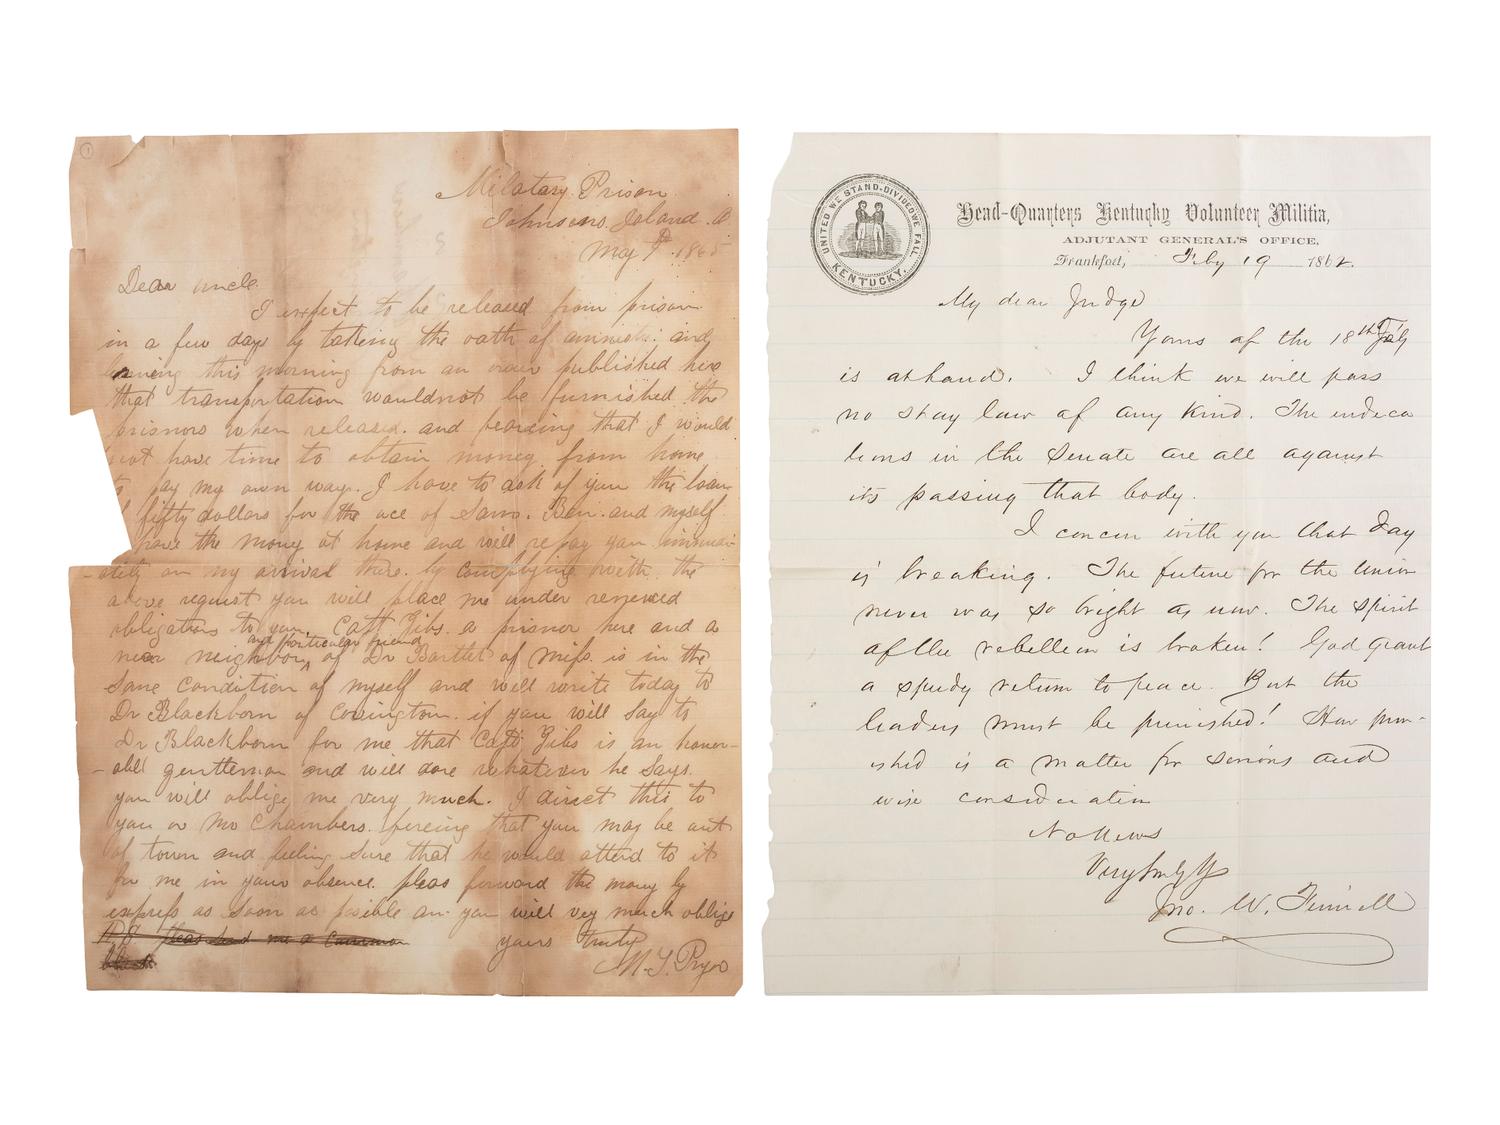 1
Milatary Prison
Johnsons Island O
May 9 1865
Dear uncle
I expect to be released from prison
in a few days by takeing the oath of amnisti. and
learning this morning from an order published here
that transportation wouldnot be furnished the
prisnors when released. and fearing that I would
not have time to obtain money from home
to pay my own way. I have to ask of you the loan
of fifty dollars for the use of Sam. Ben. and myself
have the money at home and will repay you immedi
-ately on my arrival there. by complying with the
above request you will place me under renewed
obligations to you. Capt Gibs. a prisnor here and a
near neighbor, and particular friend of Dr Bartlet of Miss. is in the
same condition of myself and will write today to
Dr Blackborn of Covington. if you will say to
Dr Blackborn for me that Capt Gibs is an honor-
-abll gentleman and will doe whatever he says.
you will oblige me very much. I direct this to
you or Mr Chambers. fereing that you may be out
of town and feeling sure that he would attend to it
for me in your absence. pleas forward the money by
express as soon as posible an you will vey much oblige
P.S. pleas send me a common yours truly
M. T. Pryor
UNITED WE STAND-DIVIDED WE FALL
KENTUCKY.
Head-Quarters Kentucky Volunteer Militia,
ADJUTANT GENERAL'S OFFICE,
Frankfort, Feby 19 1862.
My dear Judge
Yours of the 18th Feby
is at hand. I think we will pass
no stay law of any kind. The indica
tions in the Senate are all against
its passing that body.
I concur with you that day
is breaking. The future for the Union
never was so bright as now. The spirit
of the rebellion is broken! God grant
a speedy return to peace. But the
leaders must be punished! How pun-
ished is a matter for serious and
wise consideration
No News
Very truly Yrs
Jno. W. Finnell